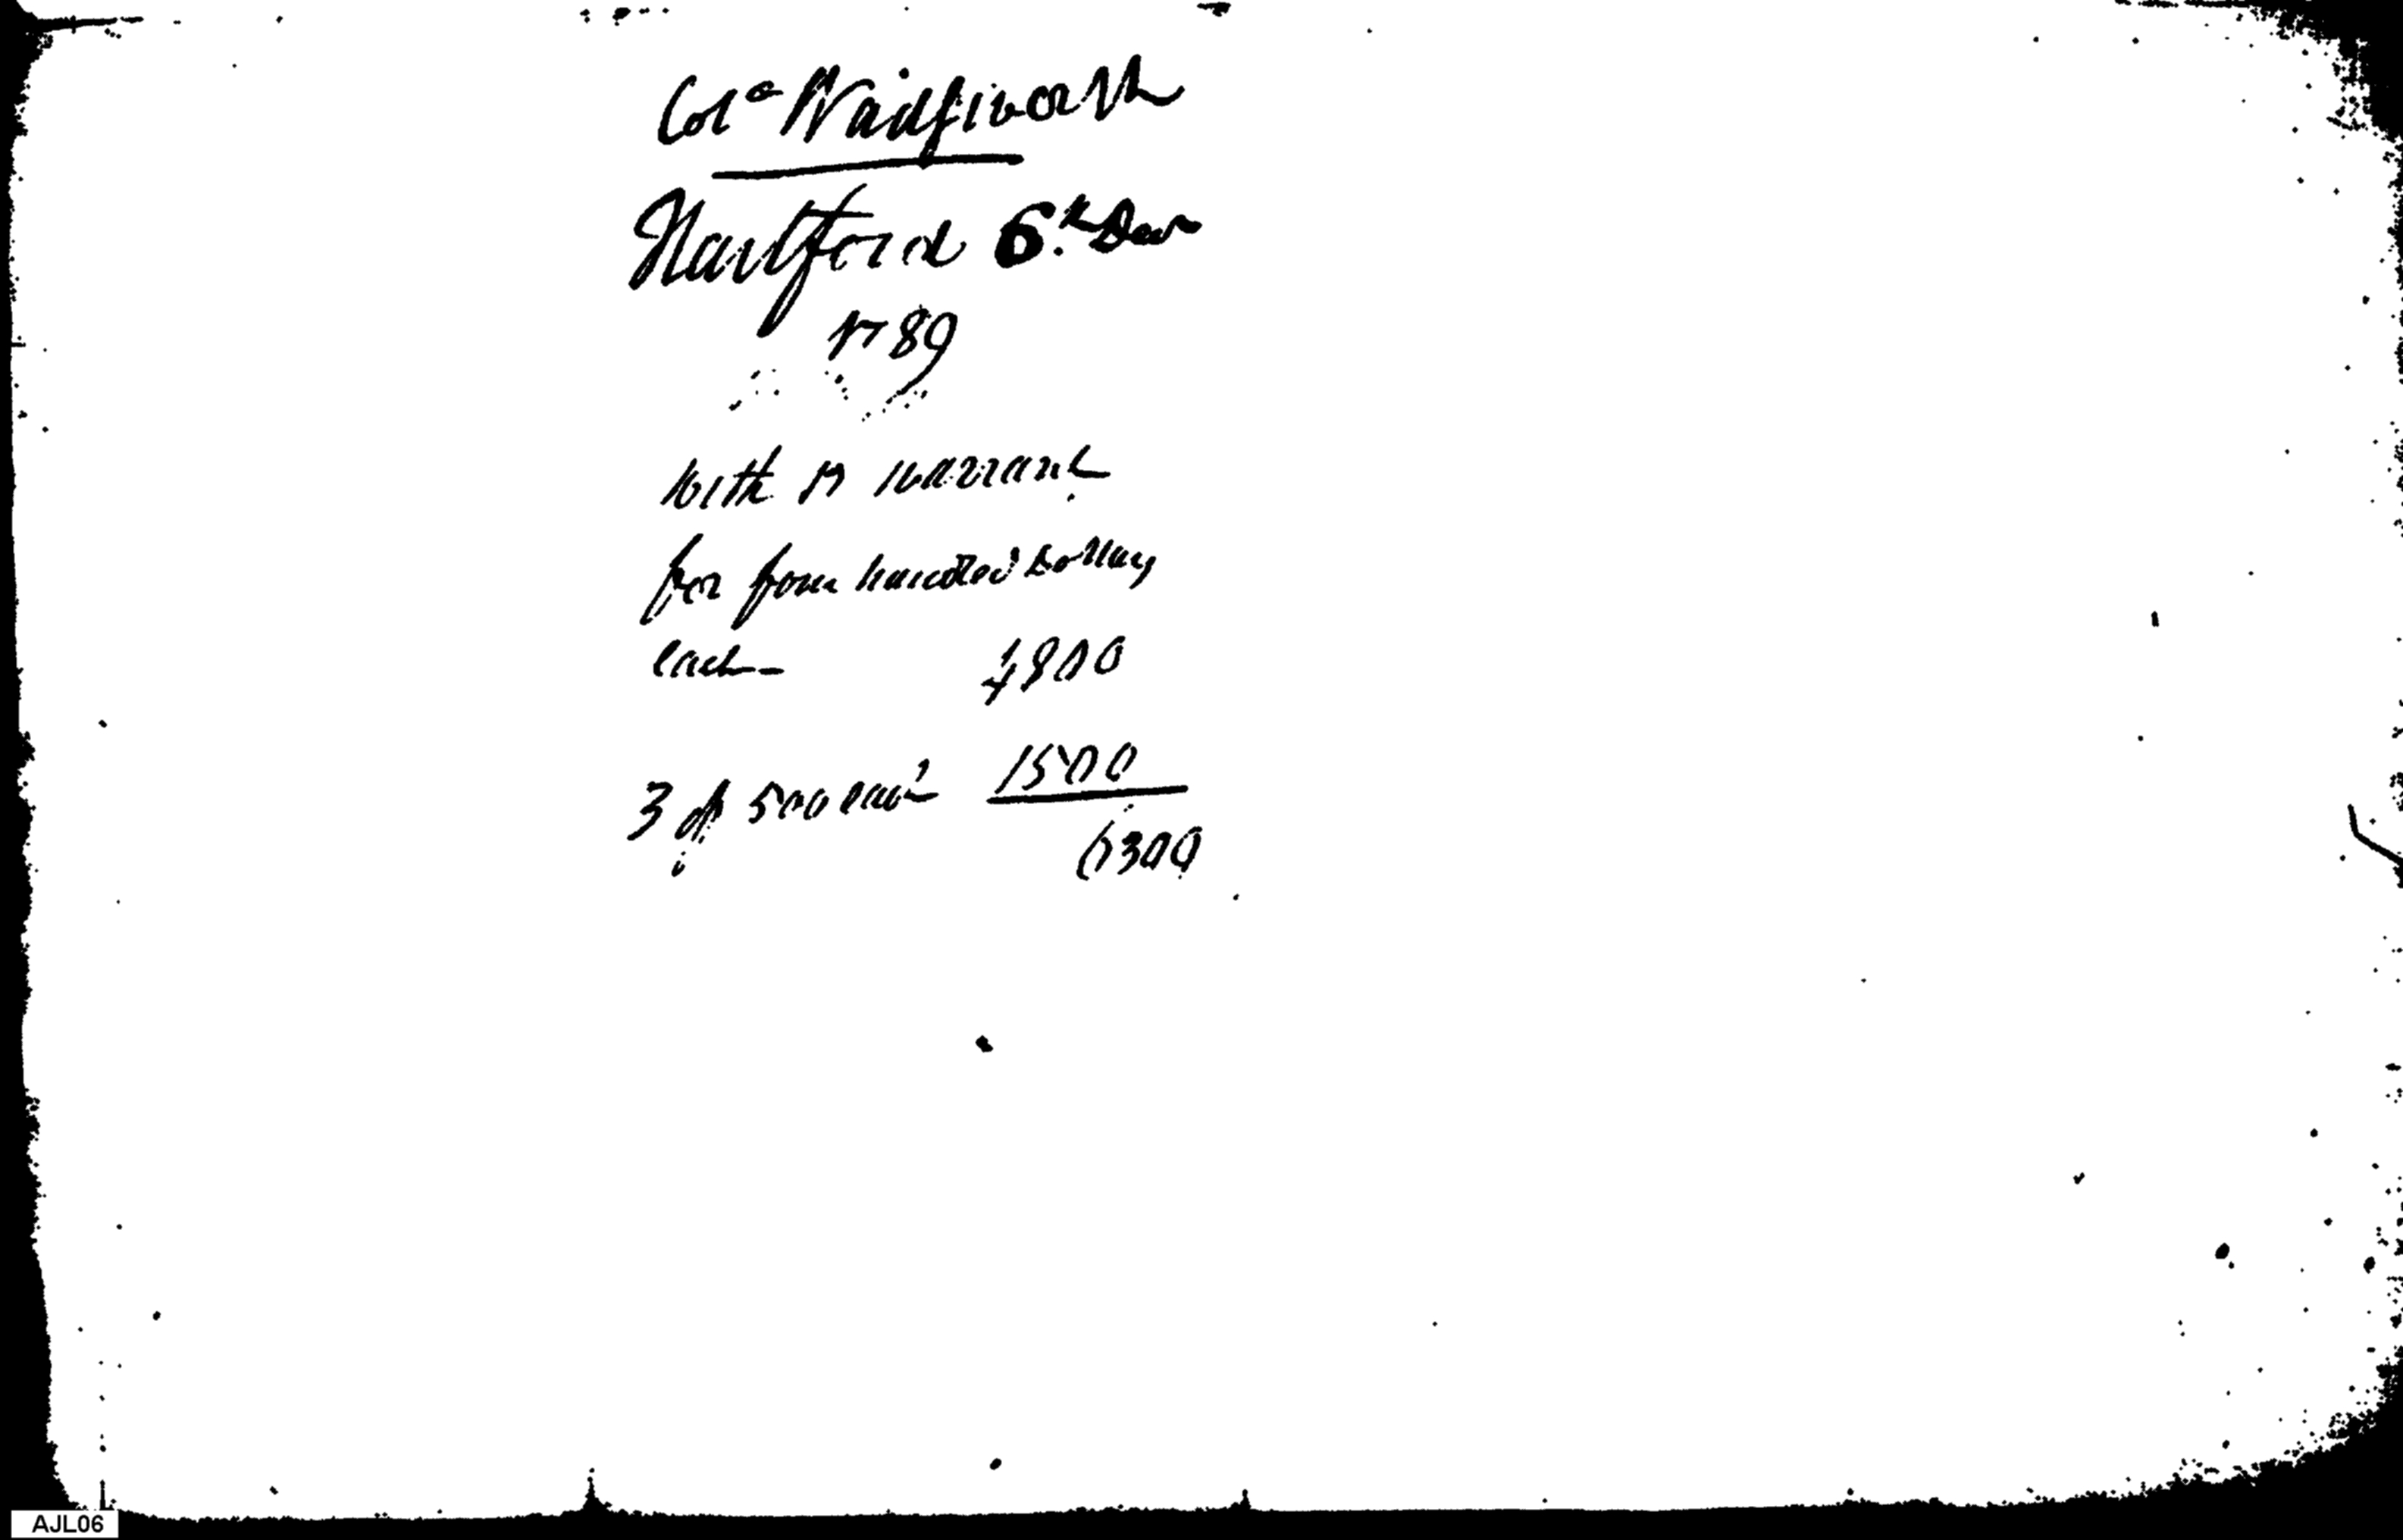 Colo Wadsworth
Hartford 6th Decr
1789
with 12 warrants
for four hundred dollars
each – 4800
3 of 500 each 1500
6300
AJL06